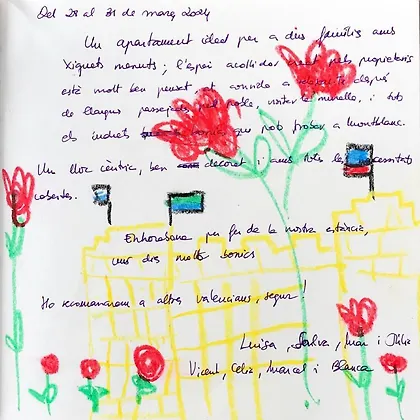 Del 28 al 31 de març 2024
Un apartament ideal per a dos famílies amb
xiquets menuts; l'espai acollidor creat pels propietaris
està molt ben pensat et convida a relaxar-te després
de llargues passejades pel poble, visitar la muralla, i tots
els indrets bonics que pots trobar a Montblanc.
Un lloc cèntric, ben decorat i amb totes les necessitats
cobertes.
Enhorabona per fer de la nostra estància,
uns dies molt bonics
Ho recomanarem a altres valencians, segur!
Luisa, Salva, Mar i Júlia
Vicent, Celia, Marcel i Blanca